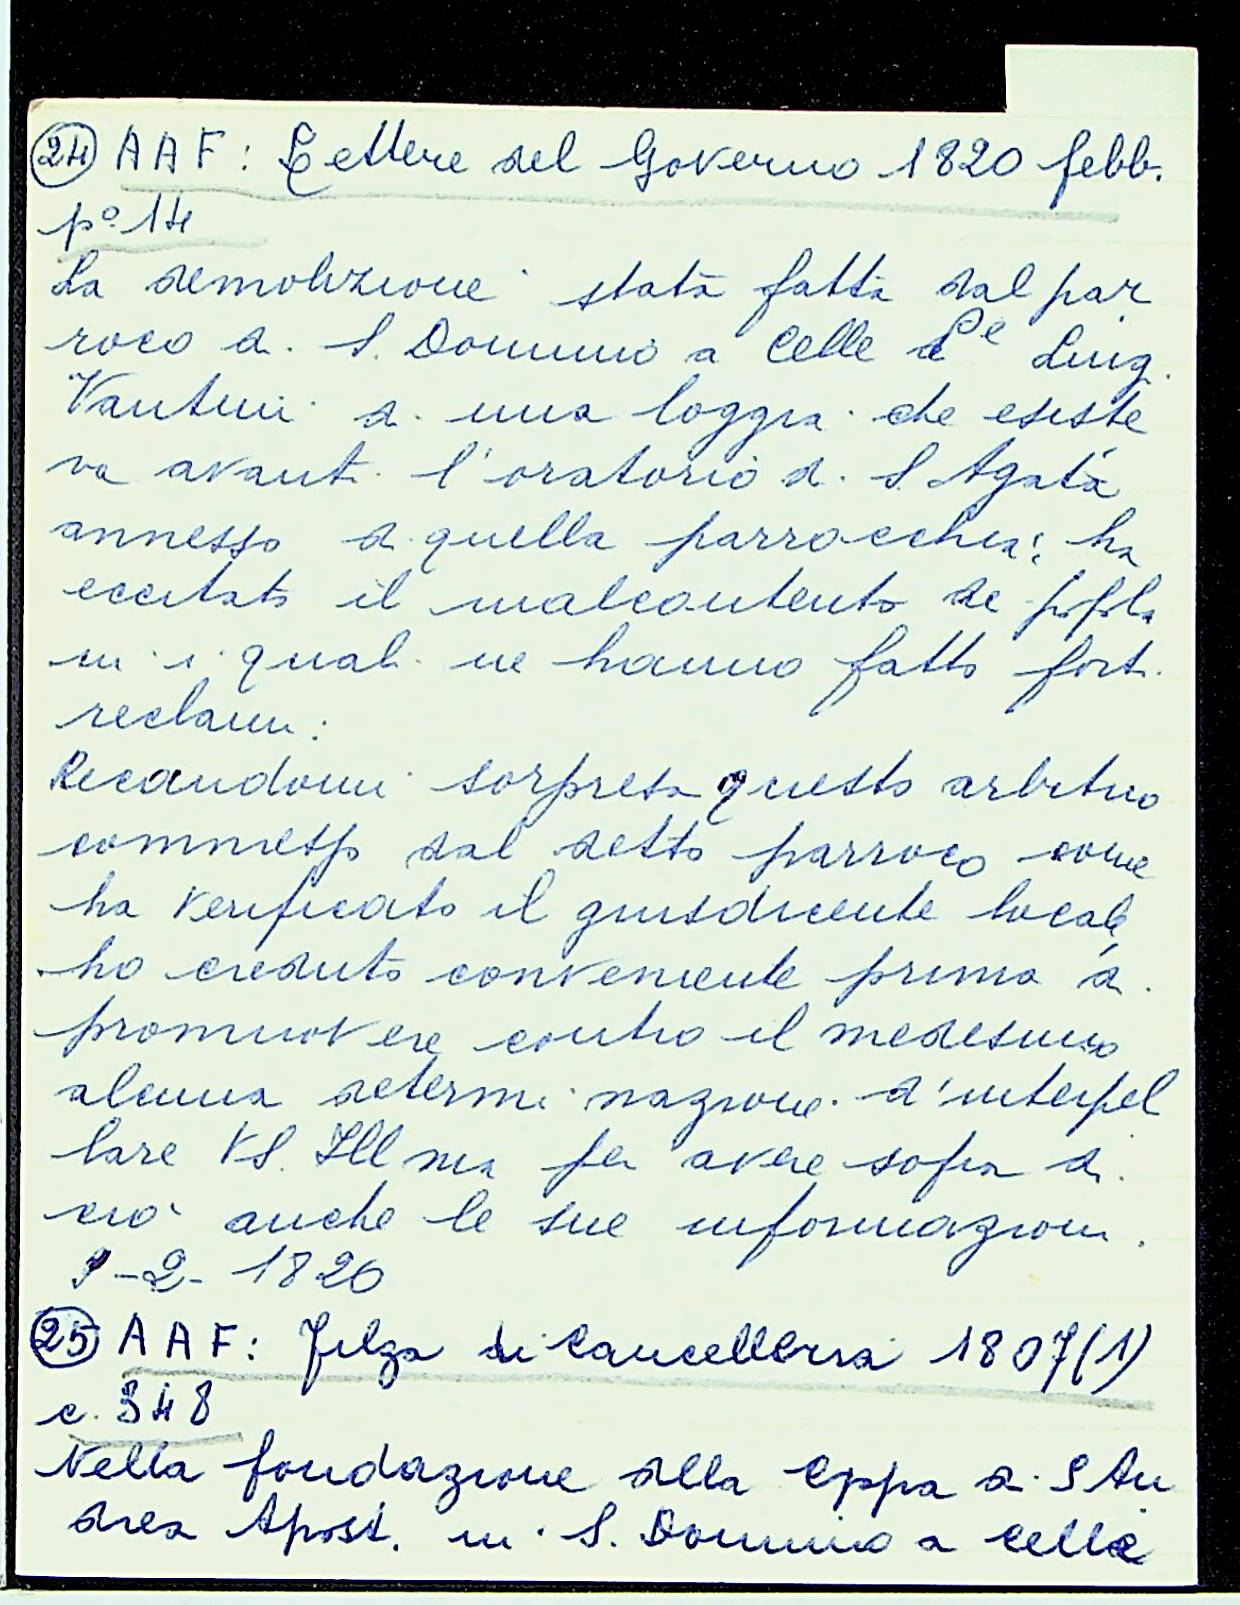 24 AAF: Lettere del Governo 1820 febb.
p° 14
La demolizione stata fatta dal par
roco di S. Donnino a Celle Luig.
Vanturi di una loggia che esiste
va avanti l'oratorio di S. Agata
annesso a quella parrocchia; ha
eccitato il malcontento de popola
ni i quali ne hanno fatto forti
reclami:
Recandomi sorpresa questo arbitrio
commesso dal detto parroco come
ha verificato il giusdicente locale,
ho creduto conveniente prima di
promuovere contro il medesimo
alcuna determinazione d'interpel
lare VS. Illma per avere sopra di
ciò anche le sue informazioni.
9-2-1820
25 AAF: Filza di Cancelleria 1807(1)
c. 348
Nella fondazione della Cppa di S An
drea Apost. in S. Donnino a Celle